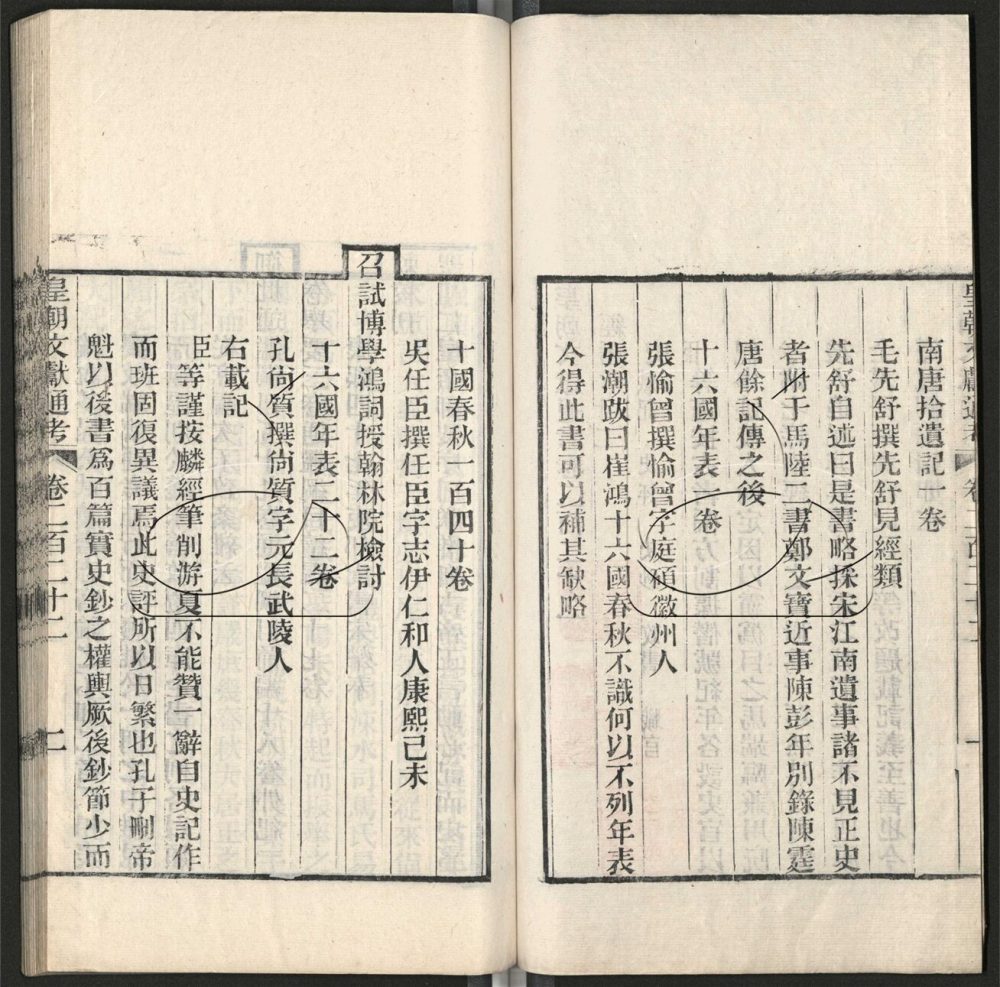 南唐拾遺記一卷
毛先舒撰先舒見經類
先舒自述曰是書略採宋江南遺事諸不見正史
者附于馬陸二書鄭文寶近事陳彭年別錄陳霆
唐餘記傳之後
十六國年表一卷
張愉曾撰愉曾字庭碩徽州人
張潮跋曰崔鴻十六國春秋不識何以不列年表
今得此書可以補其缺略
十國春秋一百四十卷
吳任臣撰任臣字志伊仁和人康熙己未
召試博學鴻詞授翰林院檢討
十六國年表二十二卷
孔尚質撰尚質字元長武陵人
右載記
臣等謹按麟經筆削游夏不能贊一辭自史記作
而班固復異議焉此史評所以日繁也孔子刪帝
魁以後書爲百篇實史鈔之權輿厥後鈔節少而
皇朝文獻通考 卷二百二十二 二